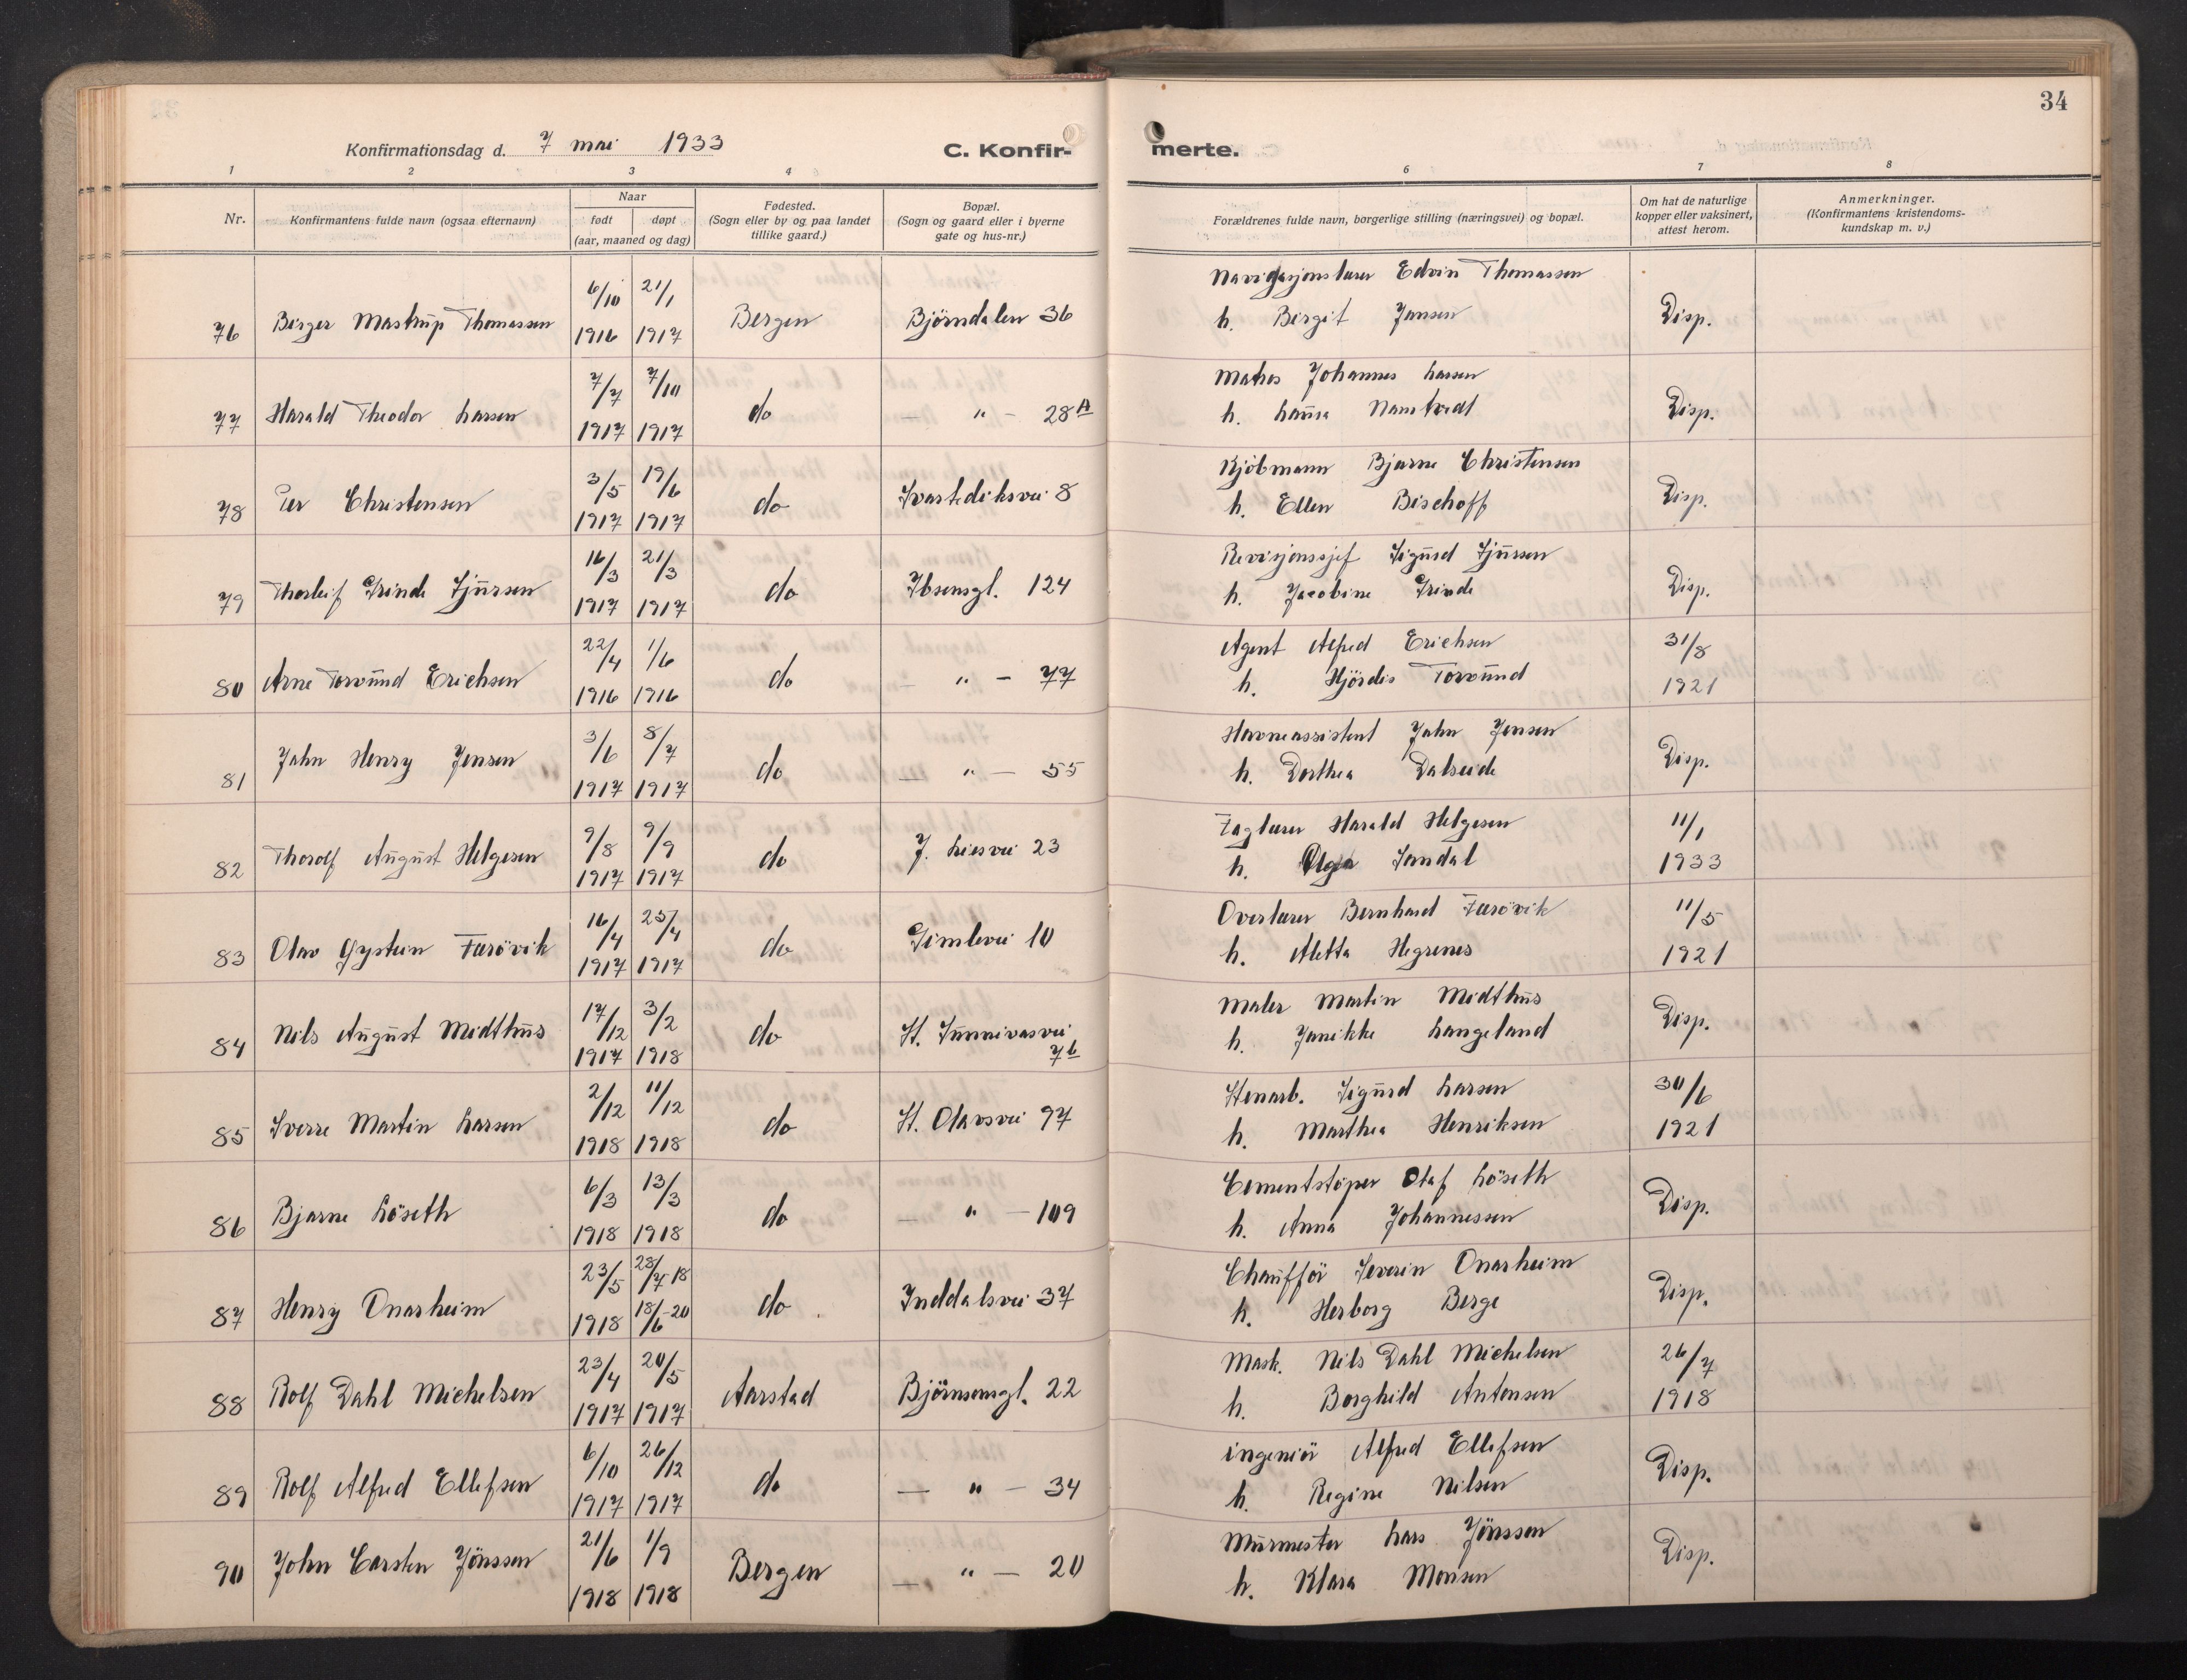 34
Konfirmationsdag d. 7 mai 1933
C. Konfirmerte.
1 2 3 4 6 7 8
Nr.
Konfirmantens fulde navn (ogsaa efternavn)
Naar
født døpt
(aar, maaned og dag)
Fødested.
(Sogn eller by og paa landet
tillike gaard.)
Bopæl.
(Sogn og gaard eller i byerne
gate og hus-nr.)
Forældrenes fulde navn, borgerlige stilling (næringsvei) og bopæl.
Om hat de naturlige
kopper eller vaksinert,
attest herom.
Anmerkninger.
(Konfirmantens kristendoms-
kundskap m. v.)
6/10 21/1 Navigasjonslærer Edvin Thomassen
76 Birger Mastrup Thomassen 1916 1917 Bergen Björndalen 36 h. Birgit Jansen Disp.
7/7 7/10 Matros Johannes Larsen
77 Harald Theodor Larsen 1917 1917 do — " — 28A h. Laura Namtvedt Disp.
3/5 17/6 Kjöbmann Bjarne Christensen
78 Per Christensen 1917 1917 do Svartediksvei 8 h. Ellen Bischoff Disp.
16/3 21/3 Revisjonssjef Sigurd Sjursen
79 Thorleif Grinde Sjursen 1917 1917 do Ibsensgt. 124 h. Jacobine Grinde Disp.
22/4 1/6 Agent Alfred Erichsen 31/8
80 Arne Torvund Erichsen 1916 1916 do — " — 77 h. Hjördis Torvund 1921
3/6 8/7 Havneassistent Jahn Jensen
81 Jahn Henry Jensen 1917 1917 do — " — 55 h. Dorthea Dalseide Disp.
9/8 9/9 Faglærer Harald Helgesen 11/1
82 Thorolf August Helgesen 1917 1917 do J. Liesvei 23 h. Olga Sandal 1933
16/4 25/4 Overlærer Bernhard Færövik 11/5
83 Olav Öystein Færövik 1917 1917 do Gimlevei 10 h. Aletta Hegrenes 1921
17/12 3/2 Maler Martin Midthus
84 Nils August Midthus 1917 1918 do St. Sunnivasvei 7b h. Janikke Langeland Disp.
2/12 11/12 Stenarb. Sigurd Larsen 30/6
85 Sverre Martin Larsen 1918 1918 do St. Olavsvei 97 h. Marthea Henriksen 1921
6/3 13/3 Cementstöper Olaf Löseth
86 Bjarne Löseth 1918 1918 do — " — 109 h. Anna Johannessen Disp.
23/5 28/7-18 Chaufför Severin Onarheim
87 Henry Onarheim 1918 18/6-20 do Inddalsvei 37 h. Herborg Berge Disp.
23/4 20/5 Mask. Nils Dahl Michelsen 26/7
88 Rolf Dahl Michelsen 1917 1917 Aarstad Björnsonsgt. 22 h. Borghild Antonsen 1918
6/10 26/12 ingeniör Alfred Ellefsen
89 Rolf Alfred Ellefsen 1917 1917 do — " — 34 h. Regine Nilsen Disp.
21/6 1/9 Murmester Lars Jönssen
90 John Carsten Jönssen 1918 1918 Bergen — " — 20 h. Klara Monsen Disp.